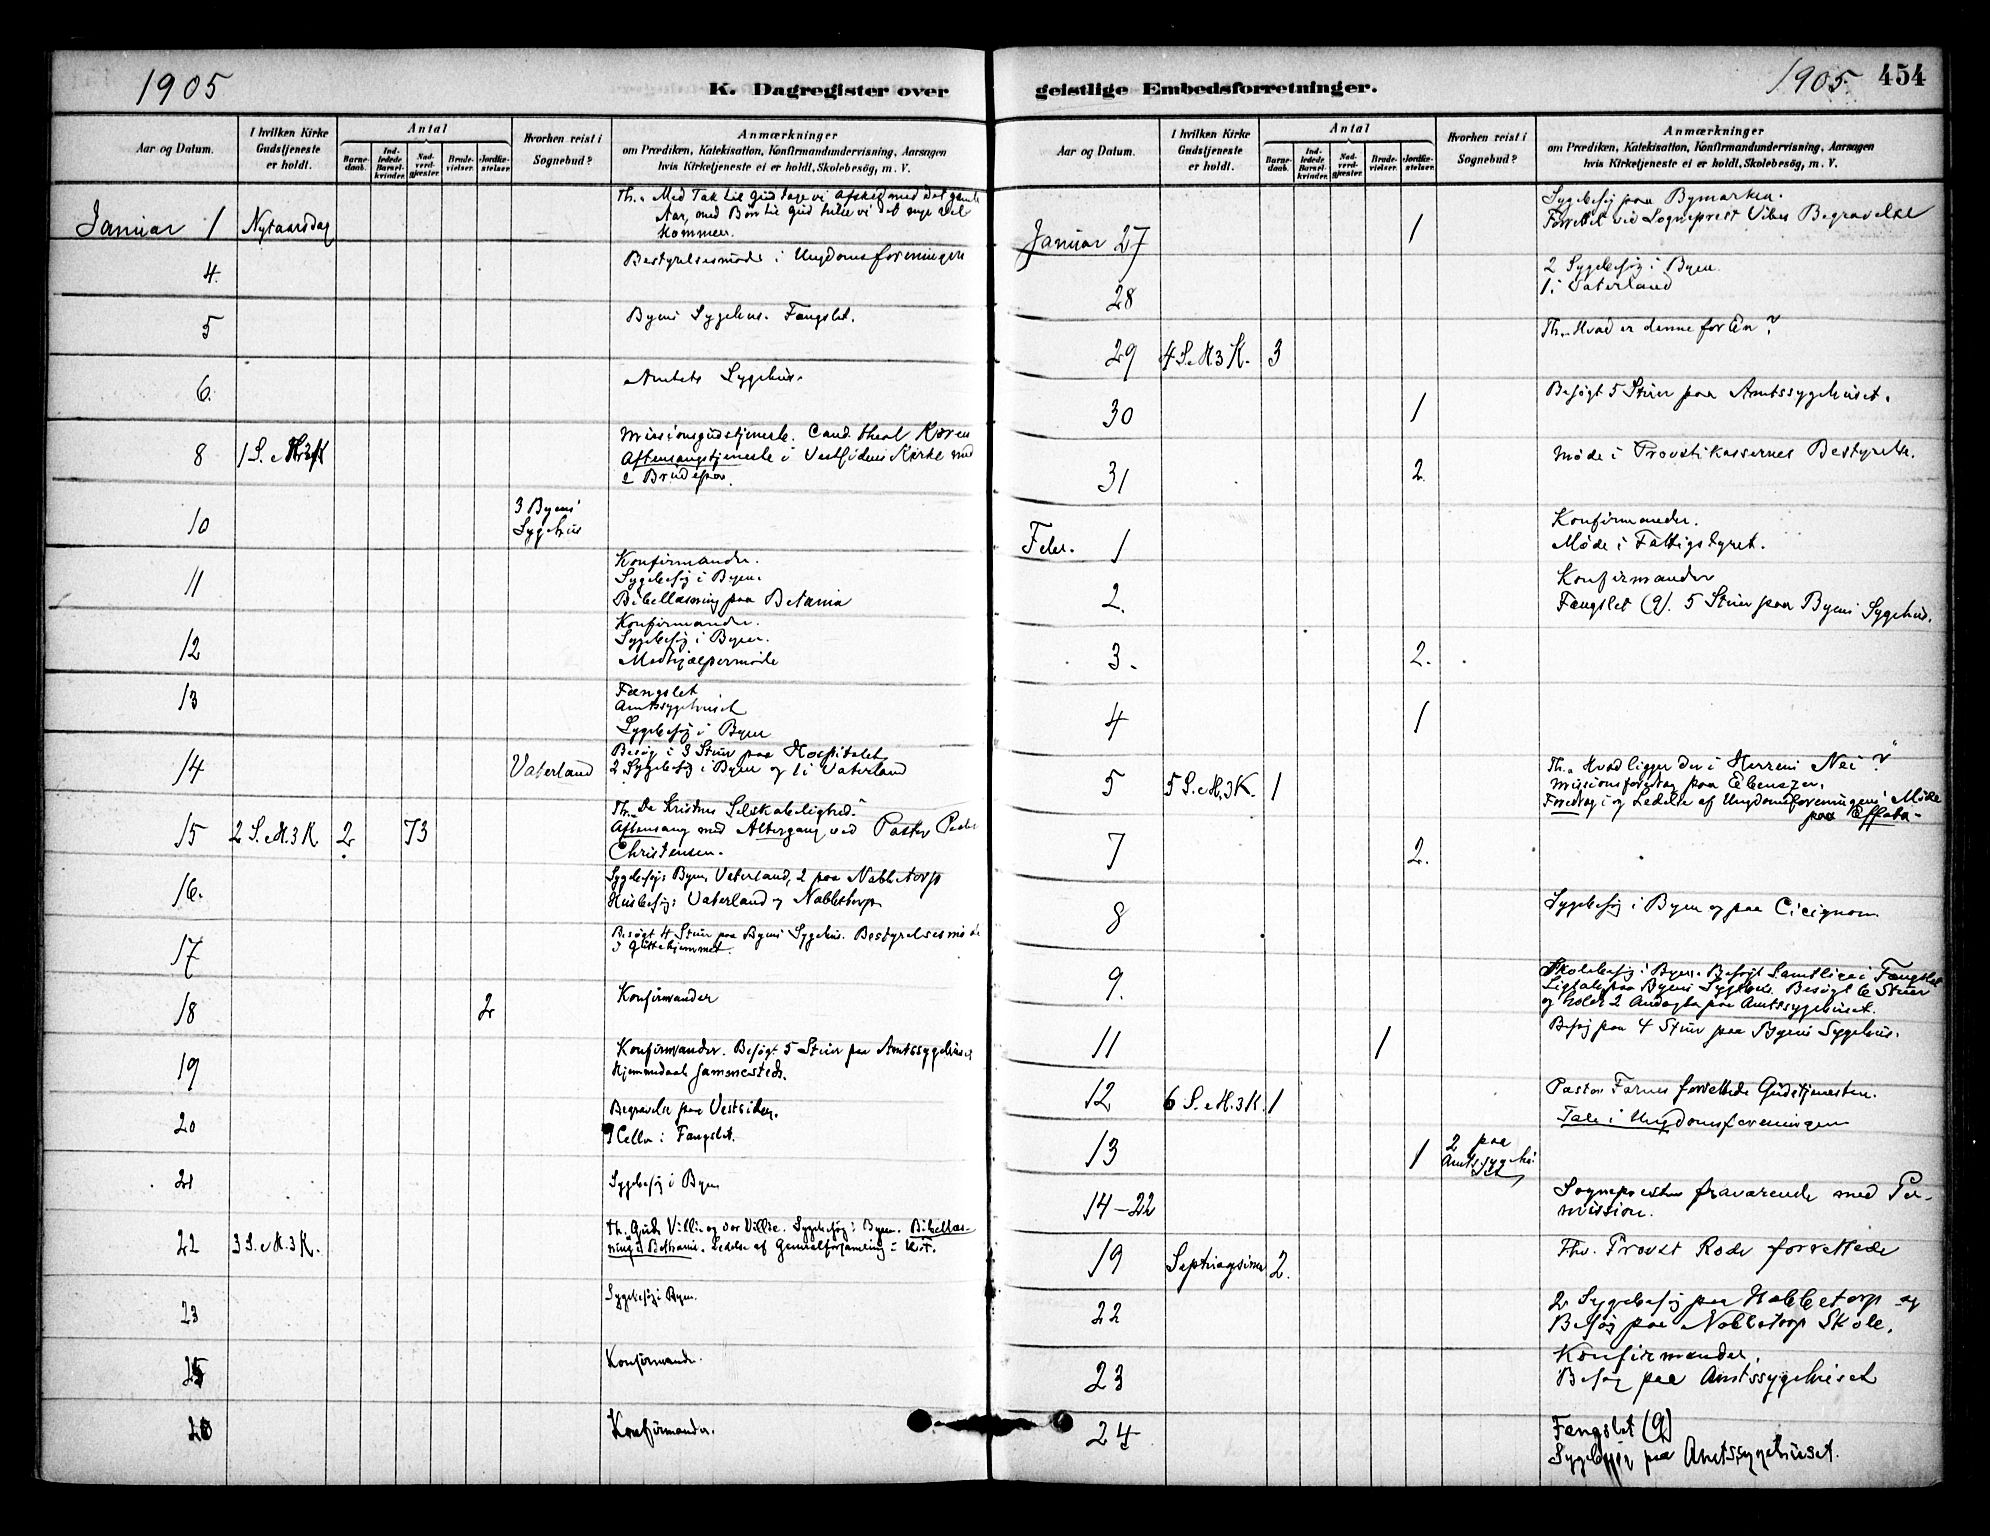 1905
K. Dagregister over
Aar og Datum.
I hvilken Kirke Gudstjeneste er holdt.
Antal
Barnedaab.
Indledede Barselkvinder.
Nadverdgjæster.
Brudevielser.
Jordfæstelser.
Hvorhen reist i Sognebud?
Anmærkninger
om Prædiken, Katekisation, Konfirmandundervisning, Aarsagen
hvis Kirketjeneste ei er holdt, Skolebesøg, m. V.
Januar 1 Nytaarsdag Th. "Med Tak til Gud tage vi Afsked med det gamle
Aar, med Bøn til Gud hilse vi det nye vel
kommen.
4. Bestyrelsesmøde i Ungdomsforeningen
5 Byens Sygehus. Fængslet.
6. Amtets Sygehus.
8 1 S. e H3K Missionsgudstjeneste. Cand. theol
Aftensangstjeneste i Vestsidens Kirke med
2 Brudepar.
10 3 Byens
Sygehus
11 Konfirmander.
Sygebesøg i Byen.
Bibellæsning paa Betania
12 Konfirmander.
Sygebesøg i Byen.
Medhjælpermøde
13 Fængslet
Amtssygehuset
Sygebesøg i Byen
14 Vaterland Besøg i 3 Stuer paa Hospitalet
2 Sygebesøg i Byen og 1 i Vaterland
15 2 S. e H. 3 K. 2 73 Th. "De Kristnes Selskabelighed"
Aftensang med Altergang ved Pastor Peder
Christensen.
16. Sygebesøg: Byen, Vaterland, 2 paa Nabbetorp
Husbesøg: Vaterland og Nabbetorp
17 Besøgt 4 Stuer paa Byens Sygehus. Bestyrelsesmøde
i Guttehjemmet.
18 2 Konfirmander
19 Konfirmander. Besøgt 5 Stuer paa Amtssygehuset
Hjemmedaab sammesteds.
20 Begravelse paa Vestsiden.
9 Celler i Fængslet.
21 Sygebesøg i Byen
22 3 S. e H. 3 K. Th. Guds Villie og vor Villie. Sygebesøg i Byen. Bibellæs-
ning i Bethania. Ledelse af Generalforsamling i U.F.
23 Sygebesøg i Byen.
25 Konfirmander.
26 Konfirmander.
geistlige Embedsforretninger.
1905. 454
Aar og Datum.
I hvilken Kirke Gudstjeneste er holdt.
Antal
Barnedaab.
Indledede Barselkvinder.
Nadverdgjæster.
Brudevielser.
Jordfæstelser.
Hvorhen reist i Sognebud?
Anmærkninger
om Prædiken, Katekisation, Konfirmandundervisning, Aarsagen
hvis Kirketjeneste ei er holdt, Skolebesøg, m. V.
Januar 27 1 Sygebesøg paa Bymarken.
Forrettet ved Sogneprest Vibes Begravelse
28 2 Sygebesøg i Byen.
1 i Vaterland
29 4 S. e H 3 K. 3 Th. "Hvad er denne for En?
30 1 Besøgt 5 Stuer paa Amtssygehuset.
31 2. Møde i Provstikassernes Bestyrelse.
Febr. 1 Konfirmander.
Møde i Fattigstyret.
2. Konfirmander
Fængslet (9). 5 Stuer paa Byens Sygehus.
3. 2.
4 1
5 5 S. e H. 3 K. 1 Th. "Hvad ligger der i Herrens Nei?"
Missionsforedrag paa Ebenezer.
Foredrag i og Ledelse af Ungdomsforeningens Møde
paa Effata
7 2.
8 Sygebesøg i Byen og paa Cicignon
9. Skolebesøg i Byen. Besøgt Samtlige i Fængslet
Ligtale paa Byens Sygehus. Besøgt 6 Stuer
og holdt 2 Andagter paa Amtssygehuset.
11 1 Besøg paa 4 Stuer paa Byens Sygehus.
12 6 S. e H. 3 K. 1 Pastor Farnes forrettede Gudstjenesten.
Tale i Ungdomsforeningen
13 1 2 paa
Amtssygehu-
set
14-22 Sognepresten fraværende med Per-
mission.
19 Septuagesima 2. Thv. Provst Rode forrettede
22 2 Sygebesøg paa Nabbetorp og
Besøg paa Nabbetorp Skole.
23 Konfirmander.
Besøg paa Amtssygehuset
24 Fængslet (9)
Sygebesøg paa Amtssygehuset.